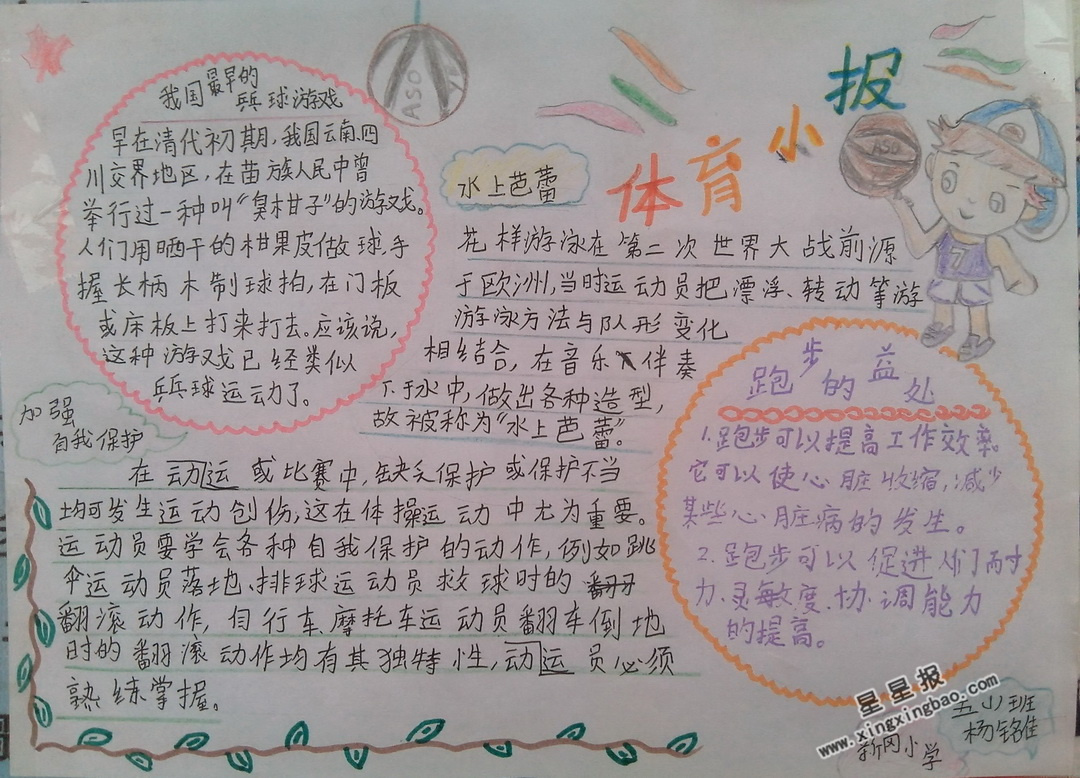 体育小报
ASO
ASO
7
我国最早的
乒球游戏
早在清代初期,我国云南、四
川交界地区,在苗族人民中曾
举行过一种叫“臭柑子”的游戏。
人们用晒干的柑果皮做球,手
握长柄木制球拍,在门板
或床板上打来打去。应该说,
这种游戏已经类似
乒球运动了。
水上芭蕾
花样游泳在第二次世界大战前源
于欧洲,当时运动员把漂浮、转动等游
游泳方法与队形变化
相结合,在音乐伴奏
下于水中,做出各种造型,
故被称为“水上芭蕾”。
加强
自我保护
在动运或比赛中,缺乏保护或保护不当
均可发生运动创伤,这在体操运动中尤为重要。
运动员要学会各种自我保护的动作,例如跳
伞运动员落地、排球运动员救球时的
翻滚动作,自行车、摩托车运动员翻车倒地
时的翻滚动作均有其独特性,动运员必须
熟练掌握。
跑步的益处
1.跑步可以提高工作效率。
它可以使心脏收缩,减少
某些心脏病的发生。
2.跑步可以促进人们耐
力、灵敏度、协调能力
的提高。
五(1)班
杨铭佳
新冈小学
星星报
www.xingxingbao.com